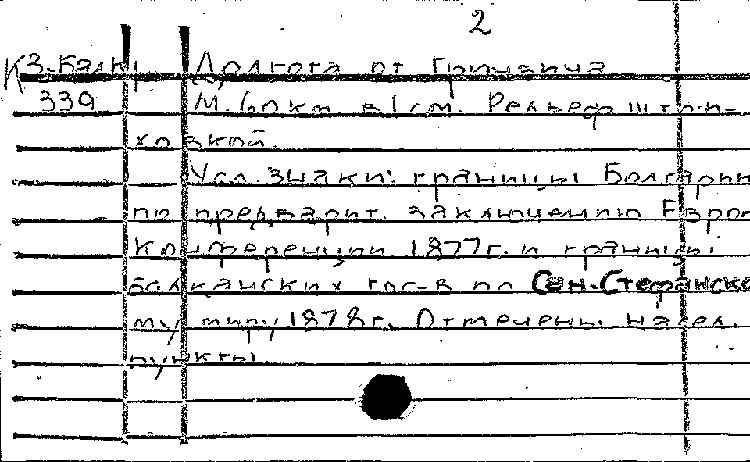 2
К3-Балк Долгота от Гринвича
339 М. 60 км в 1 см. Рельеф штри-
ховкой.
Усл. знаки: границы Болгарии
по предварит. заключению Европ
Конференции 1877г. и границы
балканских гос-в по Сан-Стефанско
му миру 1878г. Отмечены насел.
пункты.